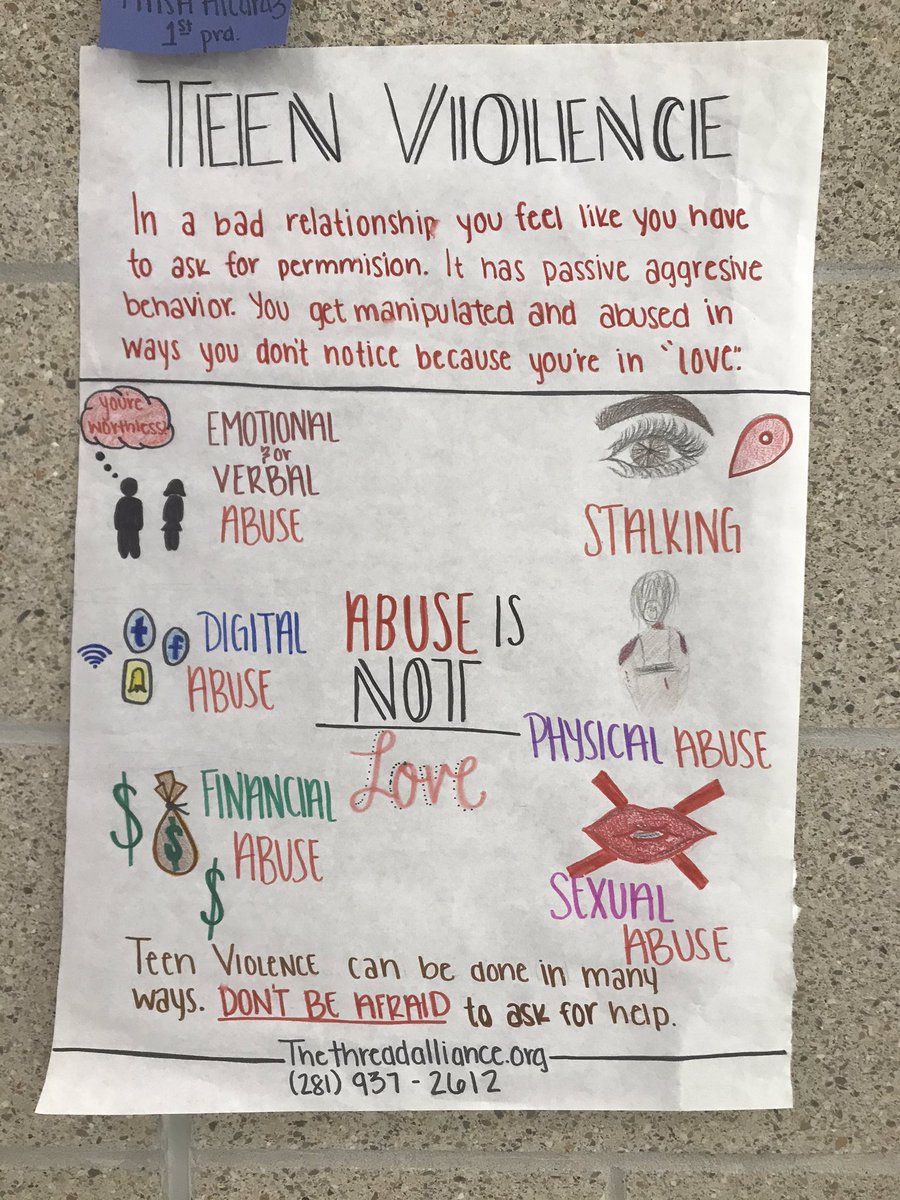 1st prd.
TEEN VIOLENCE
In a bad relationship you feel like you have
to ask for permmision. It has passive aggresive
behavior. You get manipulated and abused in
ways you don't notice because you're in "LOVE".
you're
worthless!
EMOTIONAL
&or
VERBAL
ABUSE
STALKING
DIGITAL
ABUSE
t
f
ABUSE IS
NOT
Love
PHYSICAL ABUSE
$
$
$
FINANCIAL
ABUSE
SEXUAL
ABUSE
Teen VIOLENCE can be done in many
ways. DON'T BE AFRAID to ask for help.
Thethreadalliance.org
(281) 937-2612